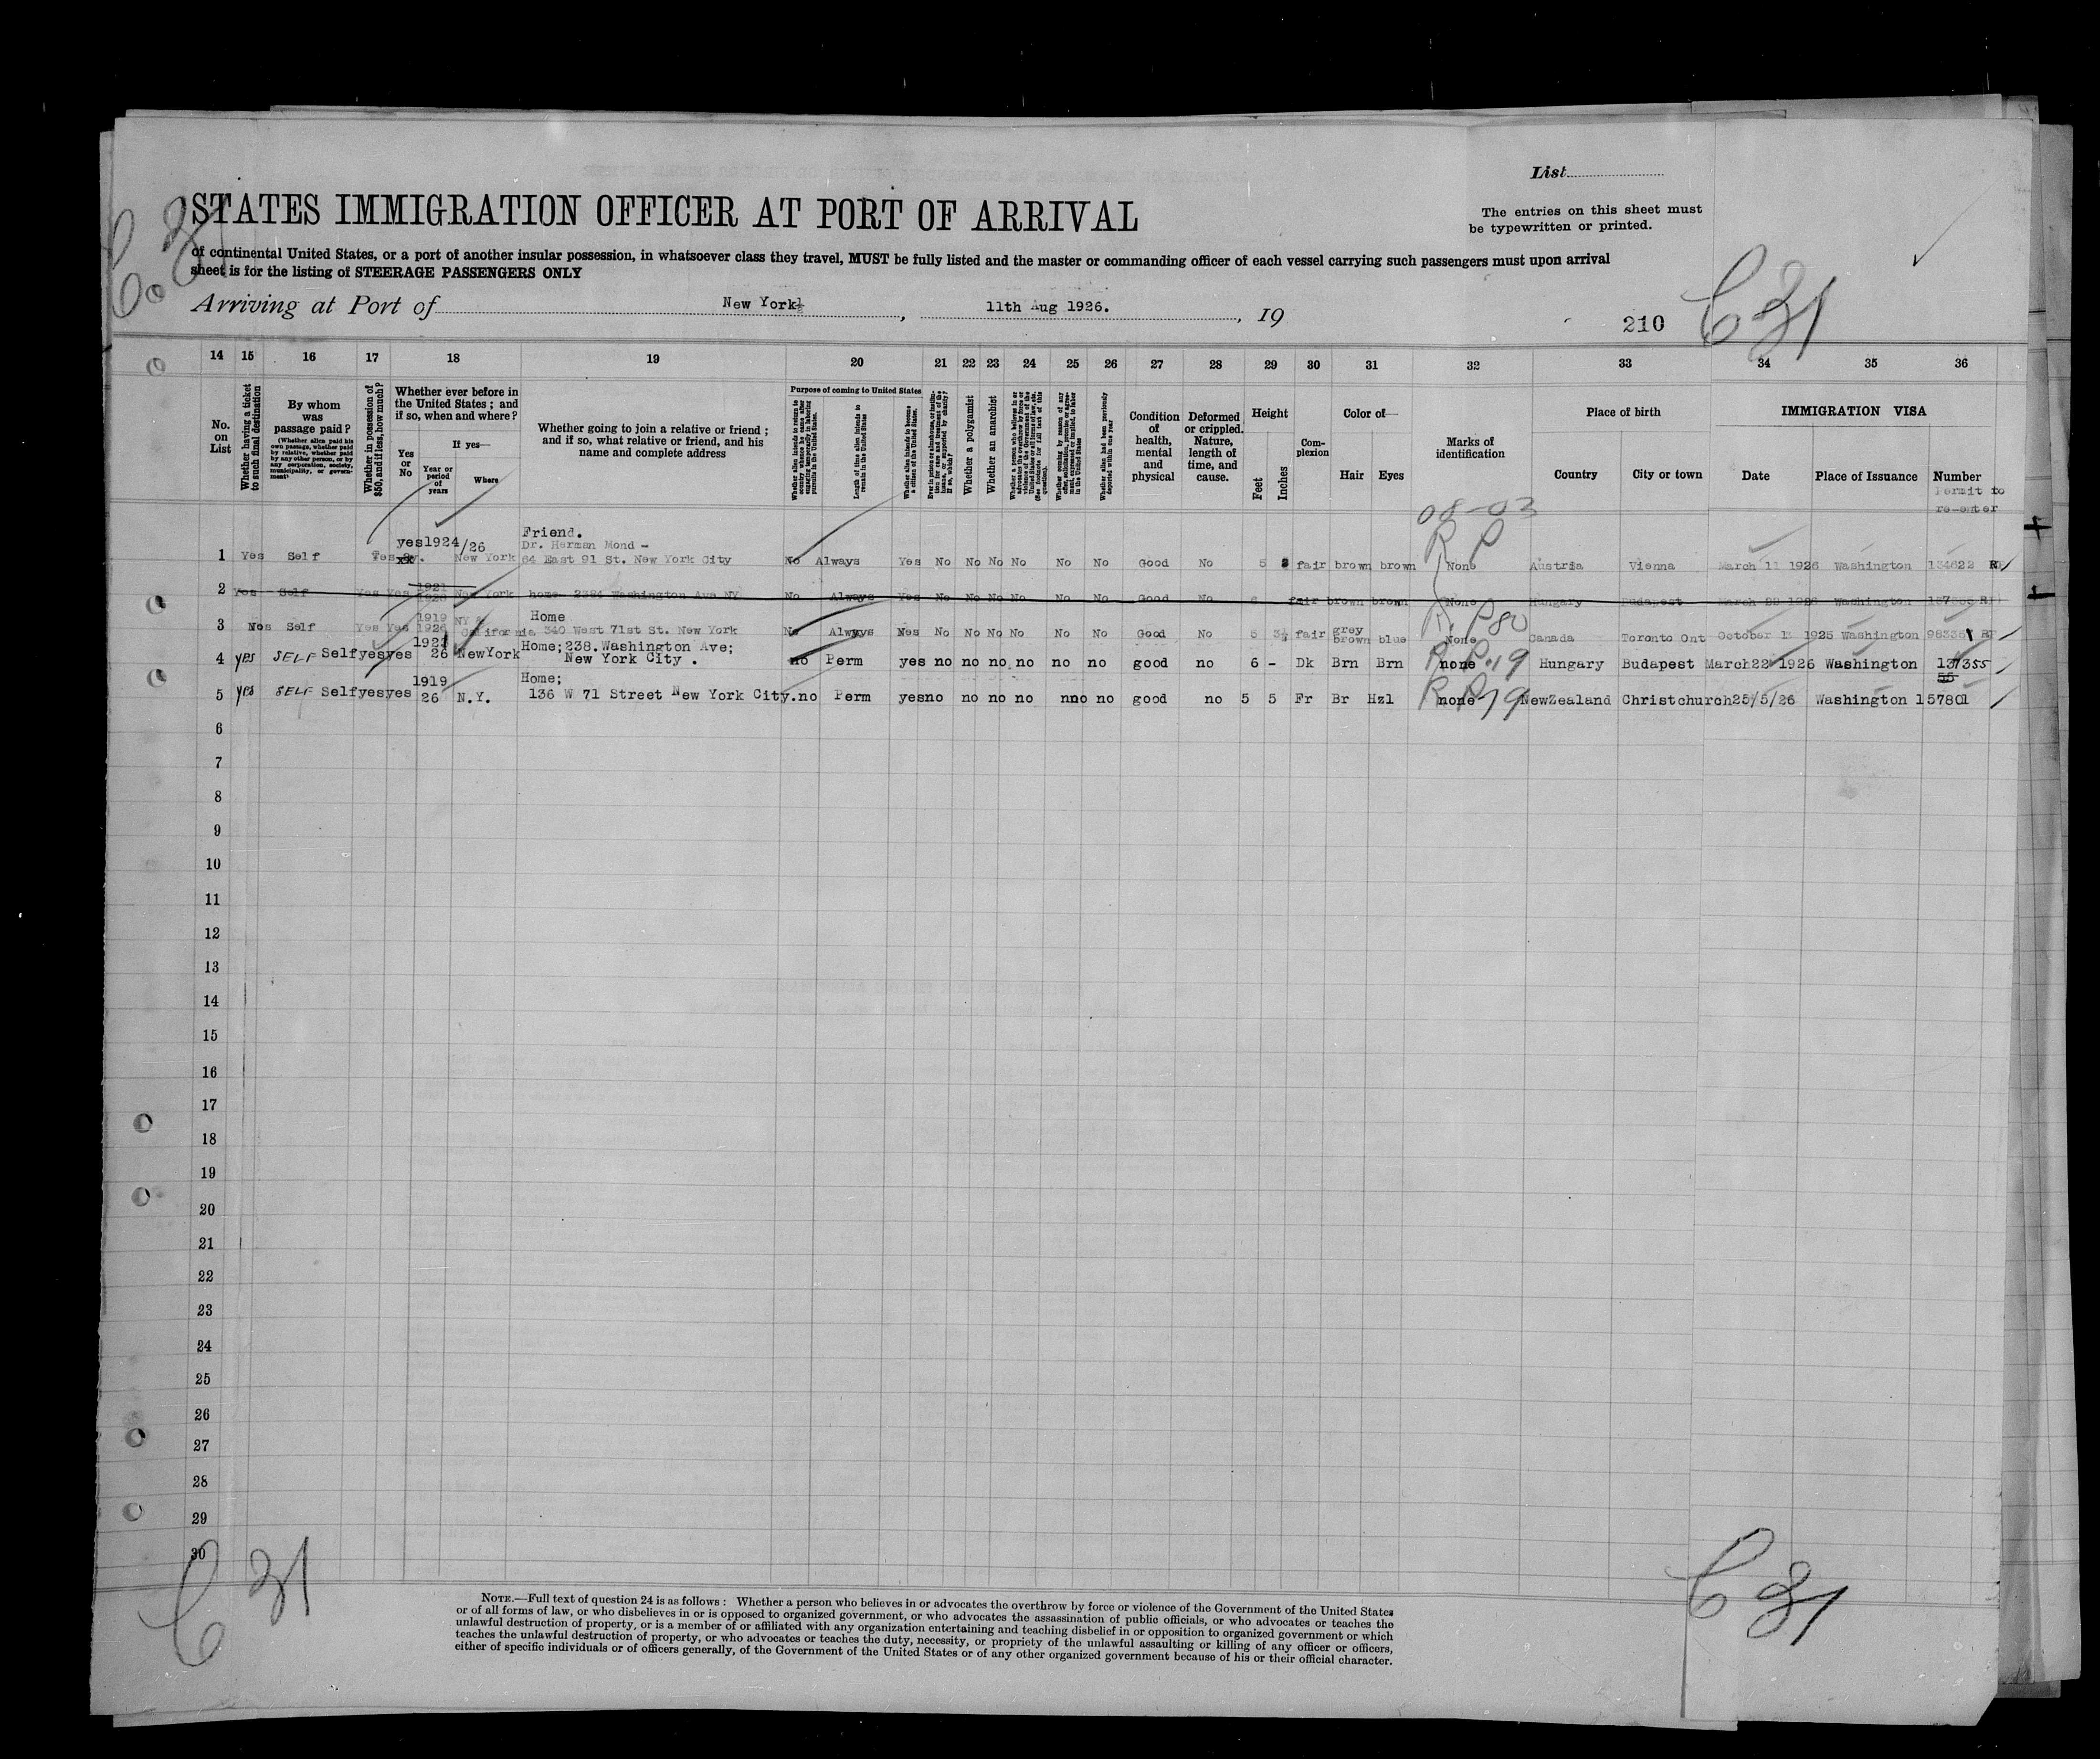 List
STATES IMMIGRATION OFFICER AT PORT OF ARRIVAL
The entries on this sheet must
be typewritten or printed.
of continental United States, or a port of another insular possession, in whatsoever class they travel, MUST be fully listed and the master or commanding officer of each vessel carrying such passengers must upon arrival
sheet is for the listing of STEERAGE PASSENGERS ONLY
Arriving at Port of New York, 11th Aug 1926. , 19
210
14 15 16 17 18 19 20 21 22 23 24 25 26 27 28 29 30 31 32 33 34 35 36
No. on List
Whether having a ticket to such final destination
By whom was passage paid?
(Whether alien paid his own passage, whether paid by relative, whether paid by any other person, or by any corporation, society, municipality, or government)
Whether in possession of $50, and if less, how much?
Whether ever before in the United States; and if so, when and where?
Yes or No
If yes—
Year or period of years
Where
Whether going to join a relative or friend; and if so, what relative or friend, and his name and complete address
Purpose of coming to United States
Whether alien intends to return to country whence he came after engaging temporarily in laboring pursuits in the United States.
Length of time alien intends to remain in the United States
Whether alien intends to become a citizen of the United States.
Whether a polygamist
Whether an anarchist
Whether alien had been previously deported within one year
Condition of health, mental and physical
Deformed or crippled. Nature, length of time, and cause.
Height
Feet
Inches
Complexion
Color of—
Hair
Eyes
Marks of identification
Place of birth
Country
City or town
IMMIGRATION VISA
Date
Place of Issuance
Number
Permit to
re-enter
08-03
1 Yes Self Yes yes 1924/26 New York Friend. Dr. Herman Mond - 64 East 91 St. New York City No Always Yes No No No No No No Good No 5 fair brown brown None Austria Vienna March 11 1926 Washington 134622 RP
2 Yes Self Yes Yes 1921 New York home 2384 Washington Ave NY No Always Yes No No No No No No Good No 6 fair brown brown None Hungary Budapest March 22 1926 Washington
3 Self Yes Yes 1919 1926 NY & California Home 340 West 71st St. New York No Always No No No No No No Good No 5 3½ fair grey brown blue None Canada Toronto Ont October 1925 Washington
4 yes SELF Self yes yes 26 NewYork Home; 238. Washington Ave; New York City . no Perm yes no no no no no no good no 6 - Dk Brn Brn none Hungary Budapest March 22 1926 Washington 137355
5 yes SELF Self yes yes 1919 26 N.Y. Home; 136 W 71 Street New York City. no Perm yes no no no no no no good no 5 5 Fr Br Hzl none NewZealand Christchurch 25/5/26 Washington 157801
6
7
8
9
10
11
12
13
14
15
16
17
18
19
20
21
22
23
24
25
26
27
28
29
30
NOTE.—Full text of question 24 is as follows: Whether a person who believes in or advocates the overthrow by force or violence of the Government of the United States
or of all forms of law, or who disbelieves in or is opposed to organized government, or who advocates the assassination of public officials, or who advocates or teaches the
unlawful destruction of property, or is a member of or affiliated with any organization entertaining and teaching disbelief in or opposition to organized government or which
teaches the unlawful destruction of property, or who advocates or teaches the duty, necessity, or propriety of the unlawful assaulting or killing of any officer or officers,
either of specific individuals or of officers generally, of the Government of the United States or of any other organized government because of his or their official character.